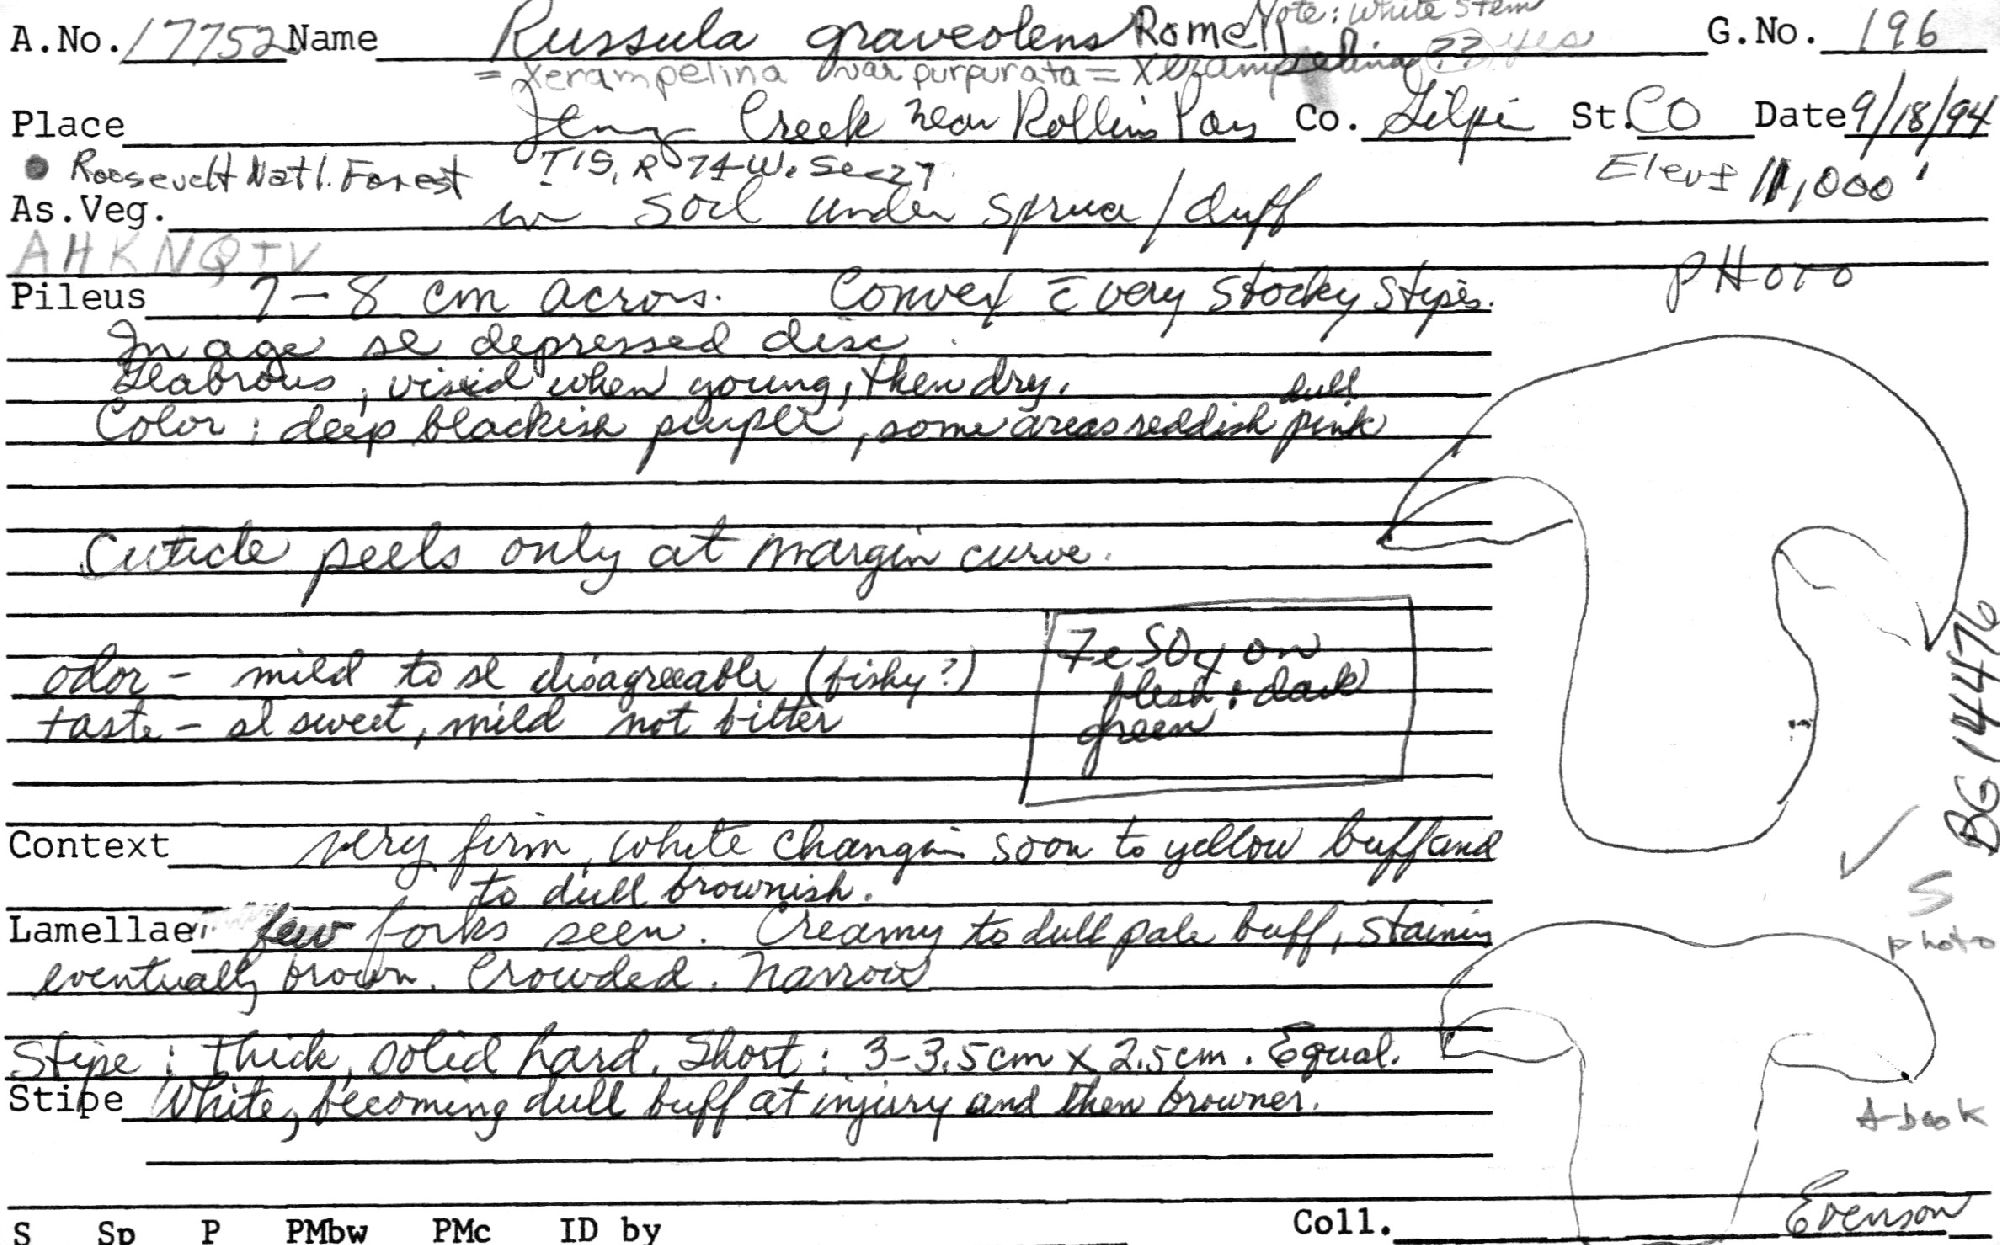 A.No. 17752 Name Russula graveolens Romell Note: White Stem G.No. 196
= Xerampelina var purpurata = Xerampelina ?? yes
Place Jenny Creek near Rollins Pass Co. Gilpin St. CO Date 9/18/94
Roosevelt Nat'l. Forest T1S, R 74W. Sec 27 Elev ± 11,000'
As.Veg. in soil under spruce/duff
AHKNQTV
PHOTO
Pileus 7-8 cm across. Convex c̄ very stocky stipes.
In age sl depressed disc.
Glabrous, viscid when young, then dry.
Color: deep blackish purple, some areas reddish dull pink
Cuticle peels only at margin curve.
odor - mild to sl disagreeable (fishy?)
taste - sl sweet, mild not bitter
FeSO4 on
flesh: dark
green
BG 14476
Context very firm, white changing soon to yellow buff and
to dull brownish.
Lamellae few forks seen. Creamy to dull pale buff, staining
eventually brown. Crowded. Narrow
S
photo
Stipe: thick, solid hard. Short: 3-3.5cm x 2.5cm. Equal.
Stipe White, becoming dull buff at injury and then browner.
A-book
S Sp P PMbw PMc ID by Coll. Evenson